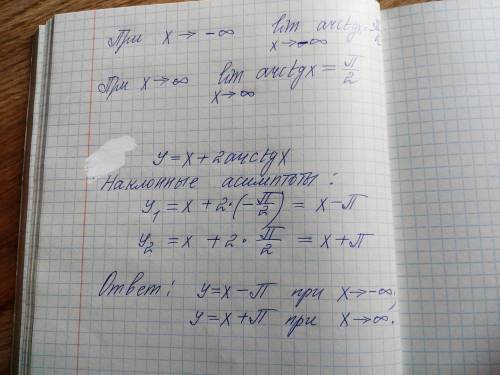 При x → -∞ lim arctg x
x → -∞
При x → ∞ lim arctg x = π/2
x → ∞
y = x + 2 arctg x
Наклонные асимптоты:
y₁ = x + 2·(-π/2) = x - π
y₂ = x + 2 · π/2 = x + π
Ответ: y = x - π при x → -∞;
y = x + π при x → ∞.